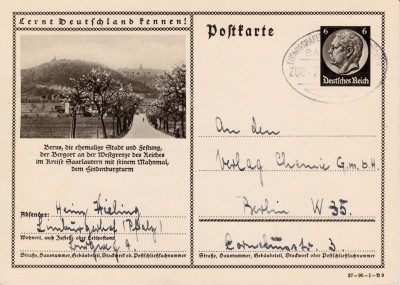 Lernt Deutschland kennen!
Berus, die ehemalige Stadt und Festung,
der Bergort an der Westgrenze des Reiches
im Kreise Saarlautern mit seinem Mahnmal,
dem Hindenburgturm
Absender:
Limburgerhof (Pfalz)
Wohnort, auch Zustell- oder Leitpostamt
Straße, Hausnummer, Gebäudeteil, Stockwerk oder Postschließfachnummer
Postkarte
6 6
Deutsches Reich
ZUG
An den
Verlag Chemie G.m.b.H
Berlin W 35.
Corneliusstr. 3.
Straße, Hausnummer, Gebäudeteil, Stockwerk oder Postschließfachnummer